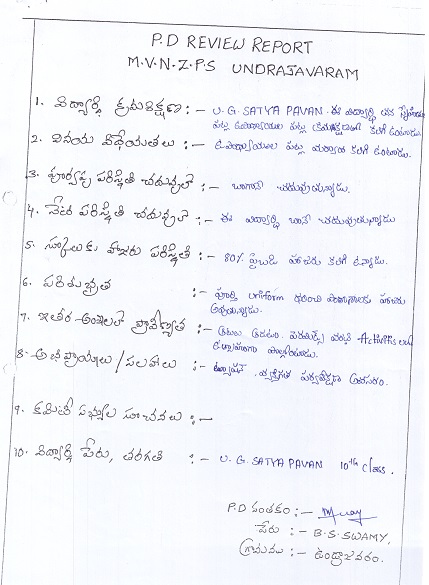 P.D REVIEW REPORT
M.V.N.Z.P.S UNDRAJAVARAM
1. విద్యార్థి క్రమశిక్షణ :- U.G. SATYA PAVAN ఈ విద్యార్థి తన స్నేహితుల
పట్ల ఉపాధ్యాయుల పట్ల క్రమశిక్షణతో కలిగి ఉంటాడు.
2. వినయ విధేయతలు :- ఉపాధ్యాయుల పట్ల మర్యాద కలిగి ఉంటాడు.
3. పూర్వపు పరిస్థితి చదువులో :- బాగానే చదువుతున్నాడు.
4. నేటి పరిస్థితి చదువులో :- ఈ విద్యార్థి బాగా చదువుతున్నాడు
5. స్కూలుకు హాజరు పరిస్థితి :- 80% పైబడి హాజరు కలిగి ఉన్నాడు.
6. పరిశుభ్రత :- పూర్తి uniform ధరించి పాఠశాలకు హాజరు
అవుతున్నాడు.
7. ఇతర అంశాలలో ప్రావీణ్యత :- ఆటలు వంటి Activities లలో
ఉత్సాహంగా పాల్గొంటాడు.
8. అభిప్రాయాలు / సలహాలు :- వ్యక్తిగత పర్యవేక్షణ అవసరం.
9. కమిటీ సభ్యుల సూచనలు :-
10. విద్యార్థి పేరు, తరగతి :- U.G. SATYA PAVAN 10th class.
P.D సంతకం :-
పేరు :- B.S. SWAMY,
గ్రామము :- ఉండ్రాజవరం.